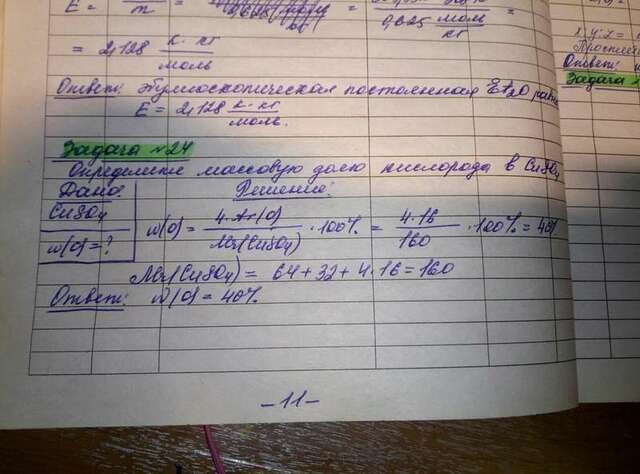 E = m = = 0,625 моль кг =
= 2,128 К·кг моль
Ответ: эбулиоскопическая постоянная Et2O равна
E = 2,128 К·кг моль.
Задача №24
Определите массовую долю кислорода в CuSO4
Дано: Решение:
CuSO4
w(O)=? w(O) = 4·Ar(O) Mr(CuSO4) ·100% = 4·16 160 ·100% = 40%
Mr(CuSO4) = 64+32+4·16=160
Ответ: w(O) = 40%
-11-
Ответ:
Задача